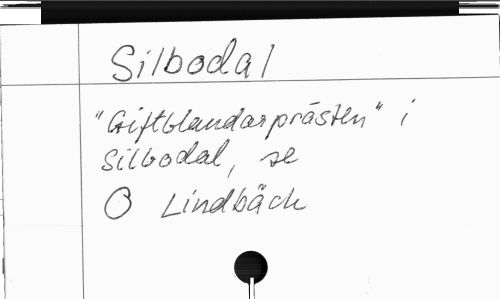 Silbodal
"Giftblandarprästen" i
Silbodal, se
O Lindbäck